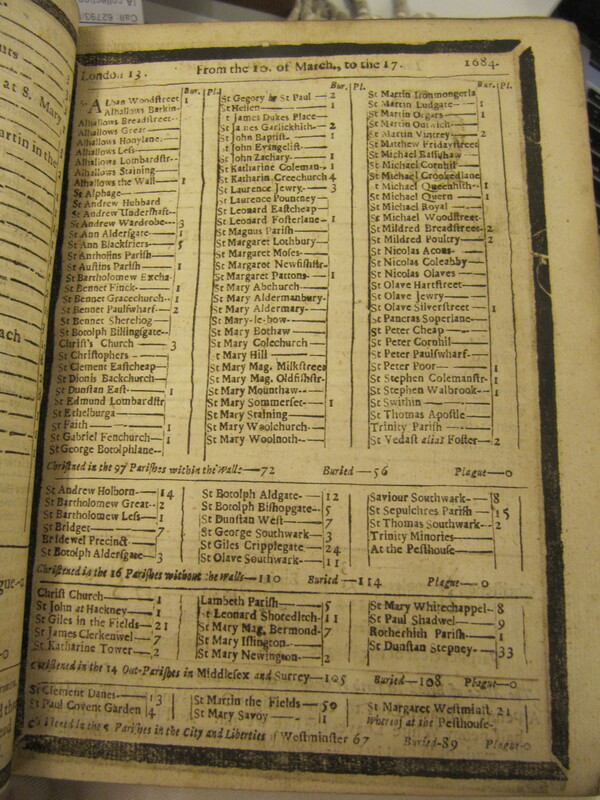 London 13. From the 10. of March., to the 17. 1684.
Bur. Pl.
St Alban Woodstreet 1
Alhallows Barkin
Alhallows Breadstreet
Alhallows Great
Alhallows Honylane
Alhallows Less
Alhallows Lombardstr
Alhallows Staining
Alhallows the Wall 1
St Alphage
St Andrew Hubbard
St Andrew Undershaft
St Andrew Wardrobe 3
St Ann Aldersgate 1
St Ann Blackfriers 5
St Antholins Parish
St Austins Parish 1
St Bartholomew Excha
St Bennet Finck 1
St Bennet Gracechurch 1
St Bennet Paulswharf 2
St Bennet Sherehog
St Botolph Billingsgate
Christ's Church 3
St Christophers
St Clement Eastcheap
St Dionis Backchurch
St Dunstan East 1
St Edmund Lombardstr
St Ethelburga
St Faith 1
St Gabriel Fenchurch 1
St George Botolphlane
Bur. Pl.
St Gegory by St Paul 2
St Hellen 1
St James Dukes Place
St James Garlickhith 2
St John Baptist 1
St John Evangelist
St John Zachary 1
St Katharine Coleman 1
St Katharin Creechurch 4
St Laurence Jewry 3
St Laurence Pountney
St Leonard Eastcheap
St Leonard Fosterlane 1
St Magnus Parish
St Margaret Lothbury
St Margaret Moses
St Margaret Newfishstr
St Margaret Pattons 1
St Mary Abchurch
St Mary Aldermanbury
St Mary Aldermary
St Mary-le-bow
St Mary Bothaw
St Mary Colechurch
St Mary Hill
St Mary Mag. Milkstreet
St Mary Mag. Oldfishstr
St Mary Mounthaw
St Mary Sommerset 1
St Mary Staining
St Mary Woolchurch
St Mary Woolnoth
Bur. Pl.
St Martin Ironmongerla
St Martin Ludgate 1
St Martin Orgars 1
St Martin Outwich
St Martin Vintrey 2
St Matthew Fridaystreet
St Michael Bassishaw
St Michael Cornhil
St Michael Crookedlane
St Michael Queenhith 1
St Michael Quern 1
St Michael Royal
St Michael Woodstreet
St Mildred Breadstreet 2
St Mildred Poultry 2
St Nicolas Acons
St Nicolas Coleabby
St Nicolas Olaves
St Olave Hartstreet
St Olave Jewry
St Olave Silverstreet 1
St Pancras Soperlane
St Peter Cheap
St Peter Cornhil
St Peter Paulswharf
St Peter Poor 1
St Stephen Colemanstr 1
St Stephen Walbrook 1
St Swithin
St Thomas Apostle
Trinity Parish
St Vedast alias Foster 2
Christned in the 97 Parishes within the Walls—72 Buried—56 Plague—0
St Andrew Holborn 14
St Bartholomew Great 2
St Bartholomew Less 1
St Bridget 7
Bridewel Precinct
St Botolph Aldersgate 3
St Botolph Aldgate 12
St Botolph Bishopgate 5
St Dunstan West 7
St George Southwark 3
St Giles Cripplegate 24
St Olave Southwark 11
Saviour Southwark 8
St Sepulchres Parish 15
St Thomas Southwark 2
Trinity Minories
At the Pesthouse
Christened in the 16 Parishes without the Walls—110 Buried—114 Plague—0
Christ Church 1
St John at Hackney 1
St Giles in the Fields 21
St James Clerkenwel 7
St Katharine Tower 2
Lambeth Parish 5
St Leonard Shoreditch 11
St Mary Mag. Bermond 7
St Mary Islington
St Mary Newington 2
St Mary Whitechappel 8
St Paul Shadwel 9
Rotherhith Parish 1
St Dunstan Stepney 33
Christened in the 14 Out-Parishes in Middlesex and Surrey—105 Buried—108 Plague—0
St Clement Danes 13
St Paul Covent Garden 4
St Martin the Fields 50
St Mary Savoy 1
St Margaret Westminst 21
Whereof at the Pesthouse
Parishes in the City and Liberties of Westminster 67 Buried-89 Plague-0